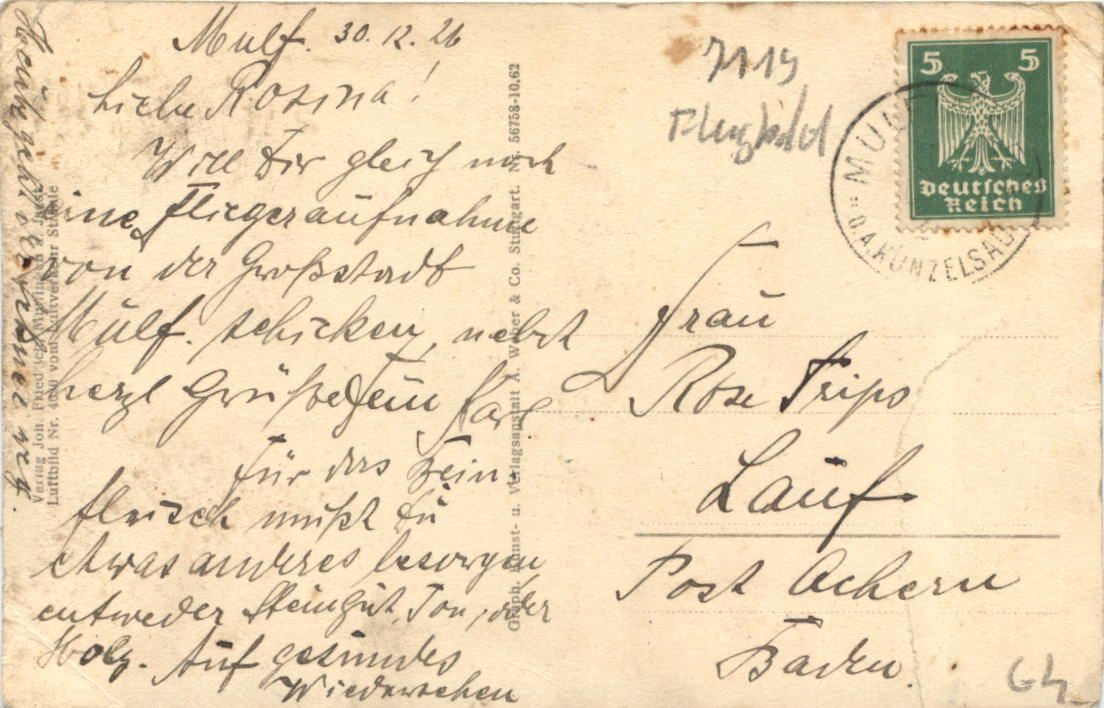 Mulf. 30.12.26
Liebe Rosina!
Will Dir gleich noch
eine Fliegeraufnahme
von der Großstadt
Mulf. schicken, nebst
herzl Grüße Dein Karl
Für das
fleisch mußt Du
etwas anderes besorgen
entweder Steingut, Ton, oder
Holz. Auf gesundes
Wiedersehen
Heute geht
Verlag Joh. Friedrich
Luftbild Nr. vom Luftverkehr Strähle
Graph. Kunst- u. Verlagsanstalt A. Weber & Co. Stuttgart. Nr. 56758-10.62
7119
Flugbild
5 5
Deutsches
Reich
O.A. KÜNZELSAU
Frau
Rose Trips
Lauf
Post Achern
Baden.